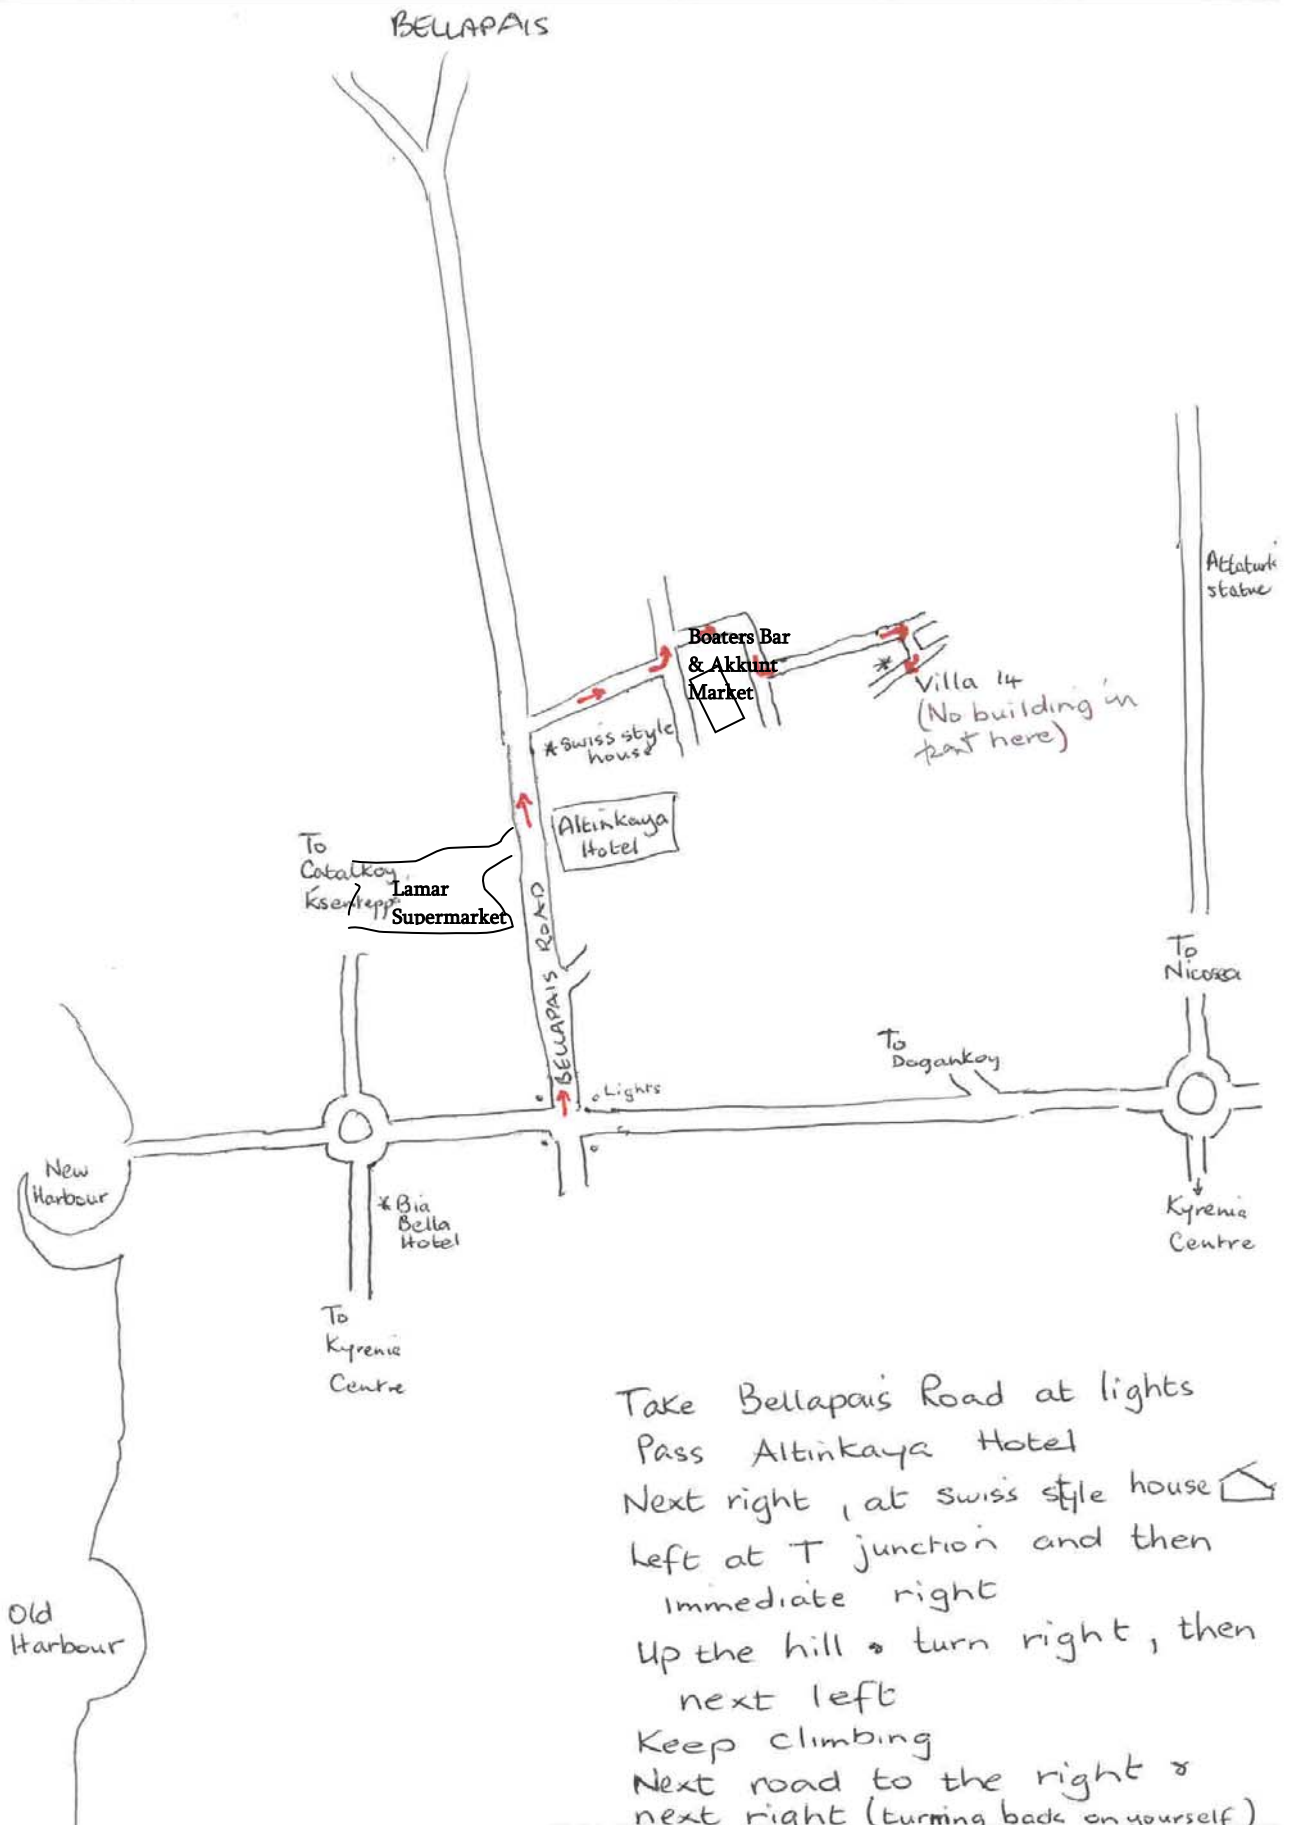 BELLAPAIS
Attaturk
statue
Boaters Bar
& Akkunt
Market
Villa 14
(No building in
part here)
* Swiss style
house
Altinkaya
Hotel
To
Catalkoy
Lamar
Supermarket
BELLAPAIS ROAD
To
Nicosea
To
Dogankoy
Lights
New
Harbour
* Bia
Bella
Hotel
Kyrenia
Centre
To
Kyrenia
Centre
Take Bellapais Road at lights
Pass Altinkaya Hotel
Next right, at Swiss style house
Left at T junction and then
immediate right
Up the hill turn right, then
next left
Keep climbing
Next road to the right &
next right (turning back on yourself)
Old
Harbour